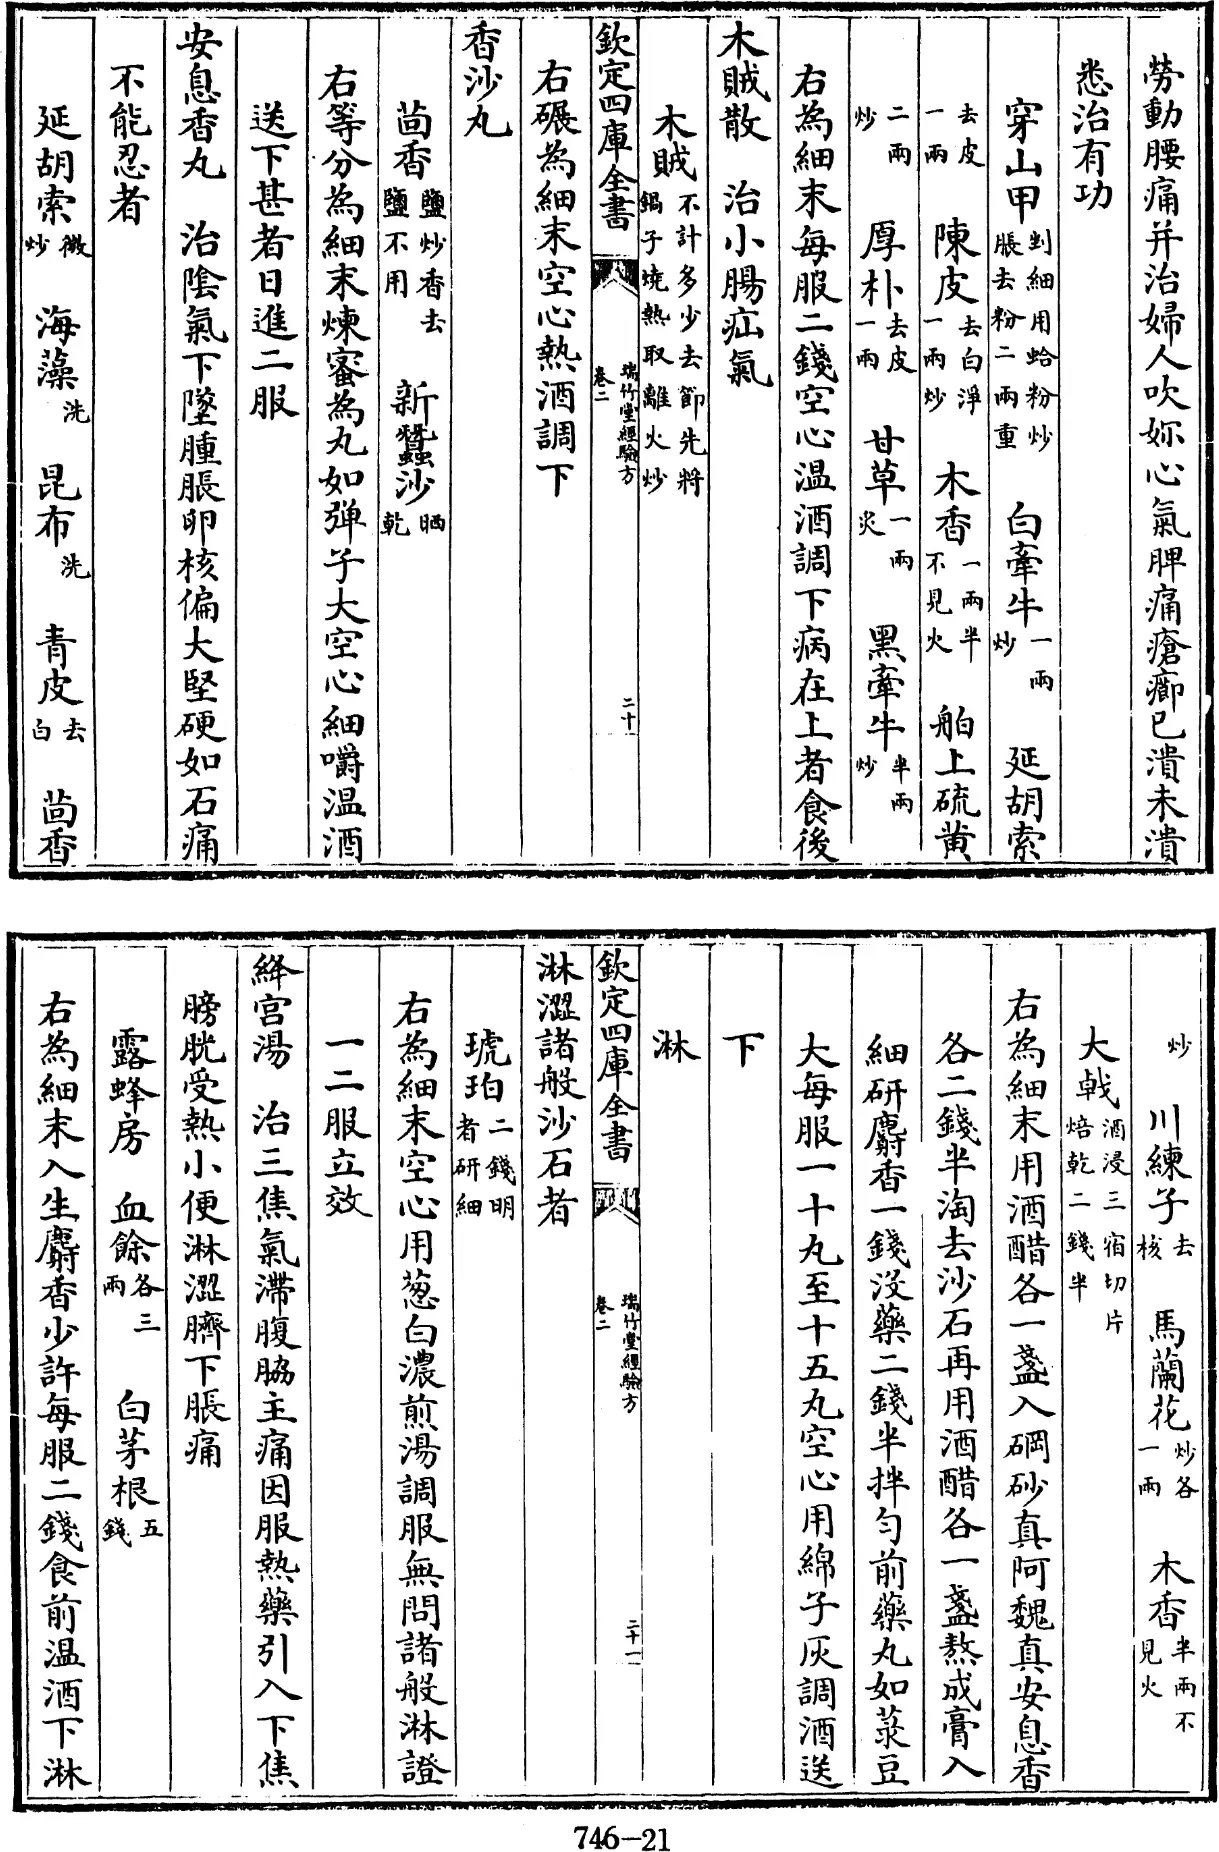 勞動腰痛并治婦人吹妳心氣脾痛瘡癤已潰未潰
悉治有功
穿山甲剉細用蛤粉炒脹去粉二兩重 白牽牛一兩炒 延胡索
去皮一兩 陳皮去白淨一兩炒 木香一兩半不見火 舶上硫黄
二兩炒 厚朴去皮一兩 甘草一兩炙 黑牽牛半兩炒
右為細末每服二錢空心温酒調下病在上者食後
木賊散 治小腸疝氣
木賊不計多少去節先將鍋子燒熱取離火炒
欽定四庫全書 瑞竹堂經驗方 卷二 二十
右碾為細末空心熱酒調下
香沙丸
茴香鹽炒香去鹽不用 新蠶沙晒乾
右等分為細末煉蜜為丸如弹子大空心細嚼温酒
送下甚者日進二服
安息香丸 治陰氣下墜腫脹卵核偏大堅硬如石痛
不能忍者
延胡索微炒 海藻洗 昆布洗 青皮去白 茴香
炒 川練子去核 馬蘭花炒各一兩 木香半兩不見火
大戟酒浸三宿切片焙乾二錢半
右為細末用酒醋各一盞入硇砂真阿魏真安息香
各二錢半淘去沙石再用酒醋各一盞熬成膏入
細研麝香一錢沒藥二錢半拌匀前藥丸如菉豆
大每服一十丸至十五丸空心用綿子灰調酒送
下
淋
欽定四庫全書 瑞竹堂經驗方 卷二 二十一
淋澀諸般沙石者
琥珀二錢明者研細
右為細末空心用葱白濃煎湯調服無問諸般淋證
一二服立效
絳宫湯 治三焦氣滯腹脇主痛因服熱藥引入下焦
膀胱受熱小便淋澀臍下脹痛
露蜂房 血餘各三兩 白茅根五錢
右為細末入生麝香少許每服二錢食前温酒下淋
746-21